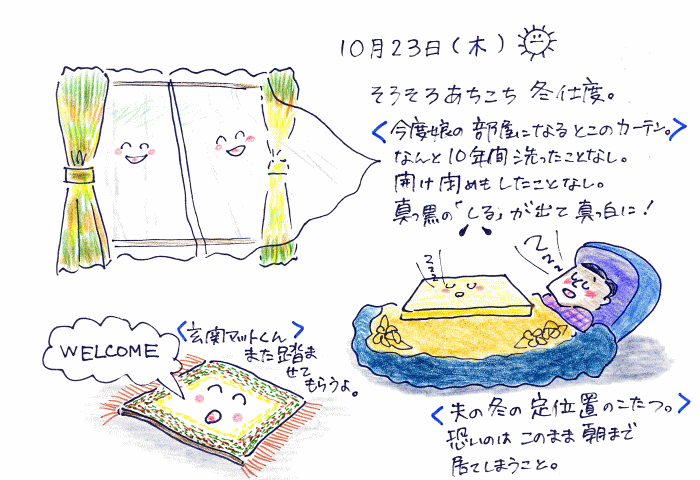 10月23日(木)
そろそろあちこち 冬仕度。
<今度娘の部屋になるとこのカーテン。>
なんと10年間洗ったことなし。
開け閉めもしたことなし。
真っ黒の「しる」が出て真っ白に!
zzz
zzz
zzz
WELCOME
<玄関マットくん>
また踏ま
せて
もらうよ。
<夫の冬の定位置のこたつ。>
恐いのは このまま朝まで
居てしまうこと。